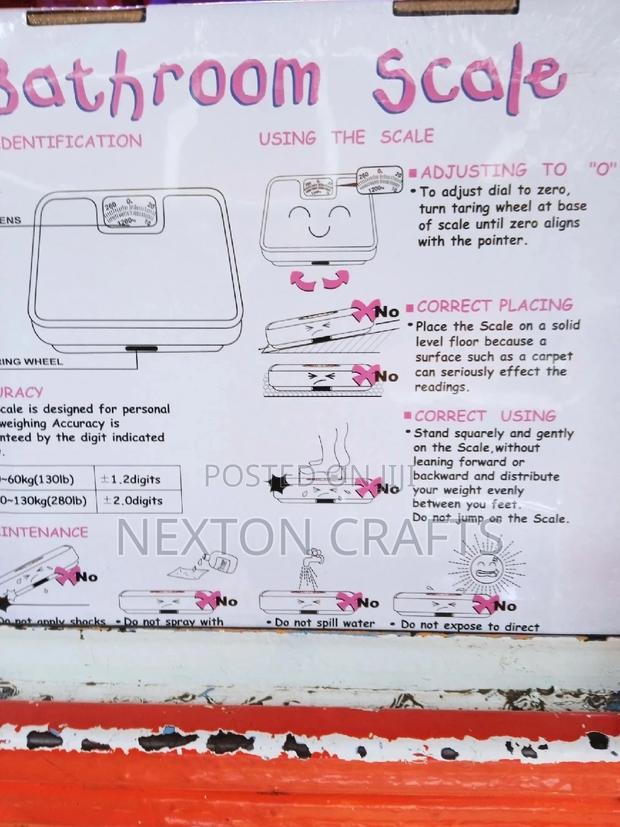 Bathroom Scale
IDENTIFICATION
USING THE SCALE
ADJUSTING TO "O"
• To adjust dial to zero,
turn taring wheel at base
of scale until zero aligns
with the pointer.
ENS
RING WHEEL
No
CORRECT PLACING
• Place the Scale on a solid
level floor because a
surface such as a carpet
can seriously effect the
readings.
No
URACY
cale is designed for personal
weighing Accuracy is
nteed by the digit indicated
0~60kg(130lb) ±1.2digits
0~130kg(280lb) ±2.0digits
CORRECT USING
• Stand squarely and gently
on the Scale,without
leaning forward or
backward and distribute
your weight evenly
between you feet.
Do not jump on the Scale.
No
POSTED ON JIJI
NEXTON CRAFTS
INTENANCE
No
No
No
No
Do not apply shocks
• Do not spray with
• Do not spill water
• Do not expose to direct